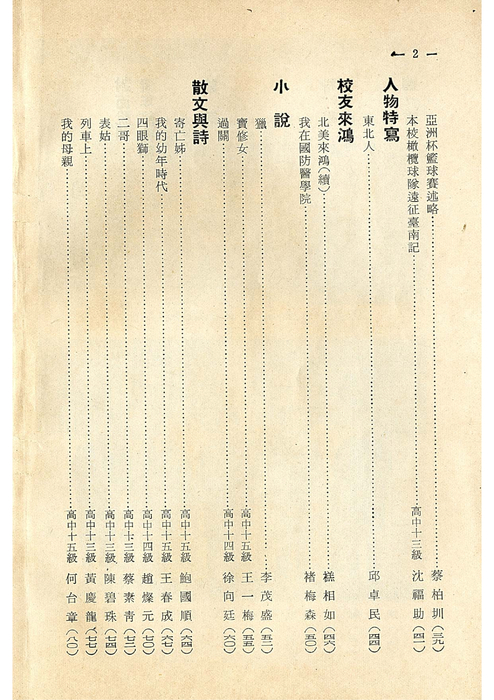 — 2 —
亞洲杯籃球賽述略……蔡柏圳(三九)
本校橄欖球隊遠征臺南記……高中十三級 沈福助(四一)
人物特寫
東北人……邱卓民(四四)
校友來鴻
北美來鴻(續)……糕相如(四六)
我在國防醫學院……褚梅森(五〇)
小說
獵……李茂盛(五二)
寶修女……高中十五級 王一梅(五五)
過關……高中十四級 徐向廷(六〇)
散文與詩
寄亡姊……高中十五級 鮑國順(六四)
我的幼年時代……高中十五級 王春成(六七)
四眼獅……高中十四級 趙燦元(七〇)
二哥……高中十三級 蔡素靑(七三)
表姑……高中十三級 陳碧珠(七四)
列車上……高中十三級 黃慶龍(七七)
我的母親……高中十五級 何台章(八〇)